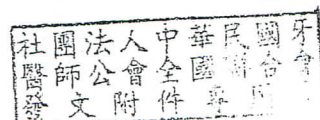 社團法人中華民國牙
醫師公會全國聯合會
發文附件專